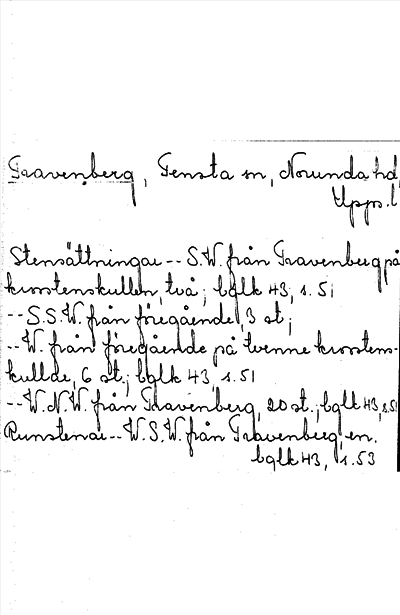 Gravenberg, Tensta sn, Norunda hd,
Upps. l
Stensättningar -- S.W. från Gravenberg på
krosstenskullen, två; bglk 43, s. 51
-- S.S.W. från föregående, 3 st;
-- W. från föregående på tvenne krosstens-
kullar, 6 st.; bglk 43 s. 51
-- W.N.W. från Gravenberg, 20 st.; bglk 43, s. 51
Runstenar -- W.S.W. från Gravenberg, en.
bglk 43, s. 53